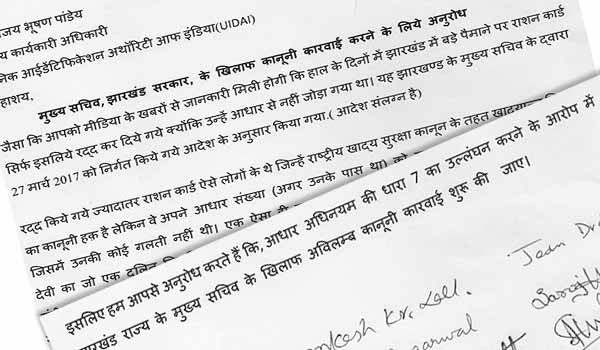 जय भूषण पांडेय
य कार्यकारी अधिकारी
निक आईडेंटिफिकेशन अथॉरिटी आफ इंडिया(UIDAI)
हाशय,
मुख्य सचिव,झारखंड सरकार, के खिलाफ कानूनी कारवाई करने के लिये अनुरोध
जैसा कि आपको मीडिया के खबरों से जानकारी मिली होगी कि हाल के दिनों में झारखंड में बड़े पैमाने पर राशन कार्ड
सिर्फ इसलिये रद्द कर दिये गये क्योंकि उन्हें आधार से नहीं जोड़ा गया था। यह झारखण्ड के मुख्य सचिव के द्वारा
27 मार्च 2017 को निर्गत किये गये आदेश के अनुसार किया गया.( आदेश संलग्न है)
रद्द किये गये ज्यादातर राशन कार्ड ऐसे लोगों के थे जिन्हें राष्ट्रीय खाद्य सुरक्षा कानून के तहत खाद्यान्न
का कानूनी हक़ है लेकिन वे अपने आधार संख्या (अगर उनके पास था) को
जिसमें उनकी कोई गलती नहीं थी। एक ऐसा ही
देवी का जो एक दलित
इसलिए हम आपसे अनुरोध करते हैं कि,आधार अधिनयम की धारा 7 का उल्लंघन करने के आरोप में
झारखंड राज्य के मुख्य सचिव के खिलाफ अविलम्ब कानूनी कारवाई शुरू की जाए।
Jean
Kr.